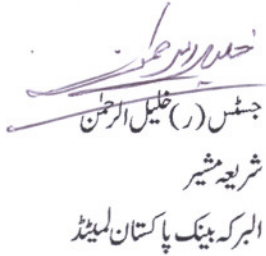 جسٹس (ر) خلیل الرحمٰن
شریعہ مشیر
البرکہ بینک پاکستان لمیٹڈ